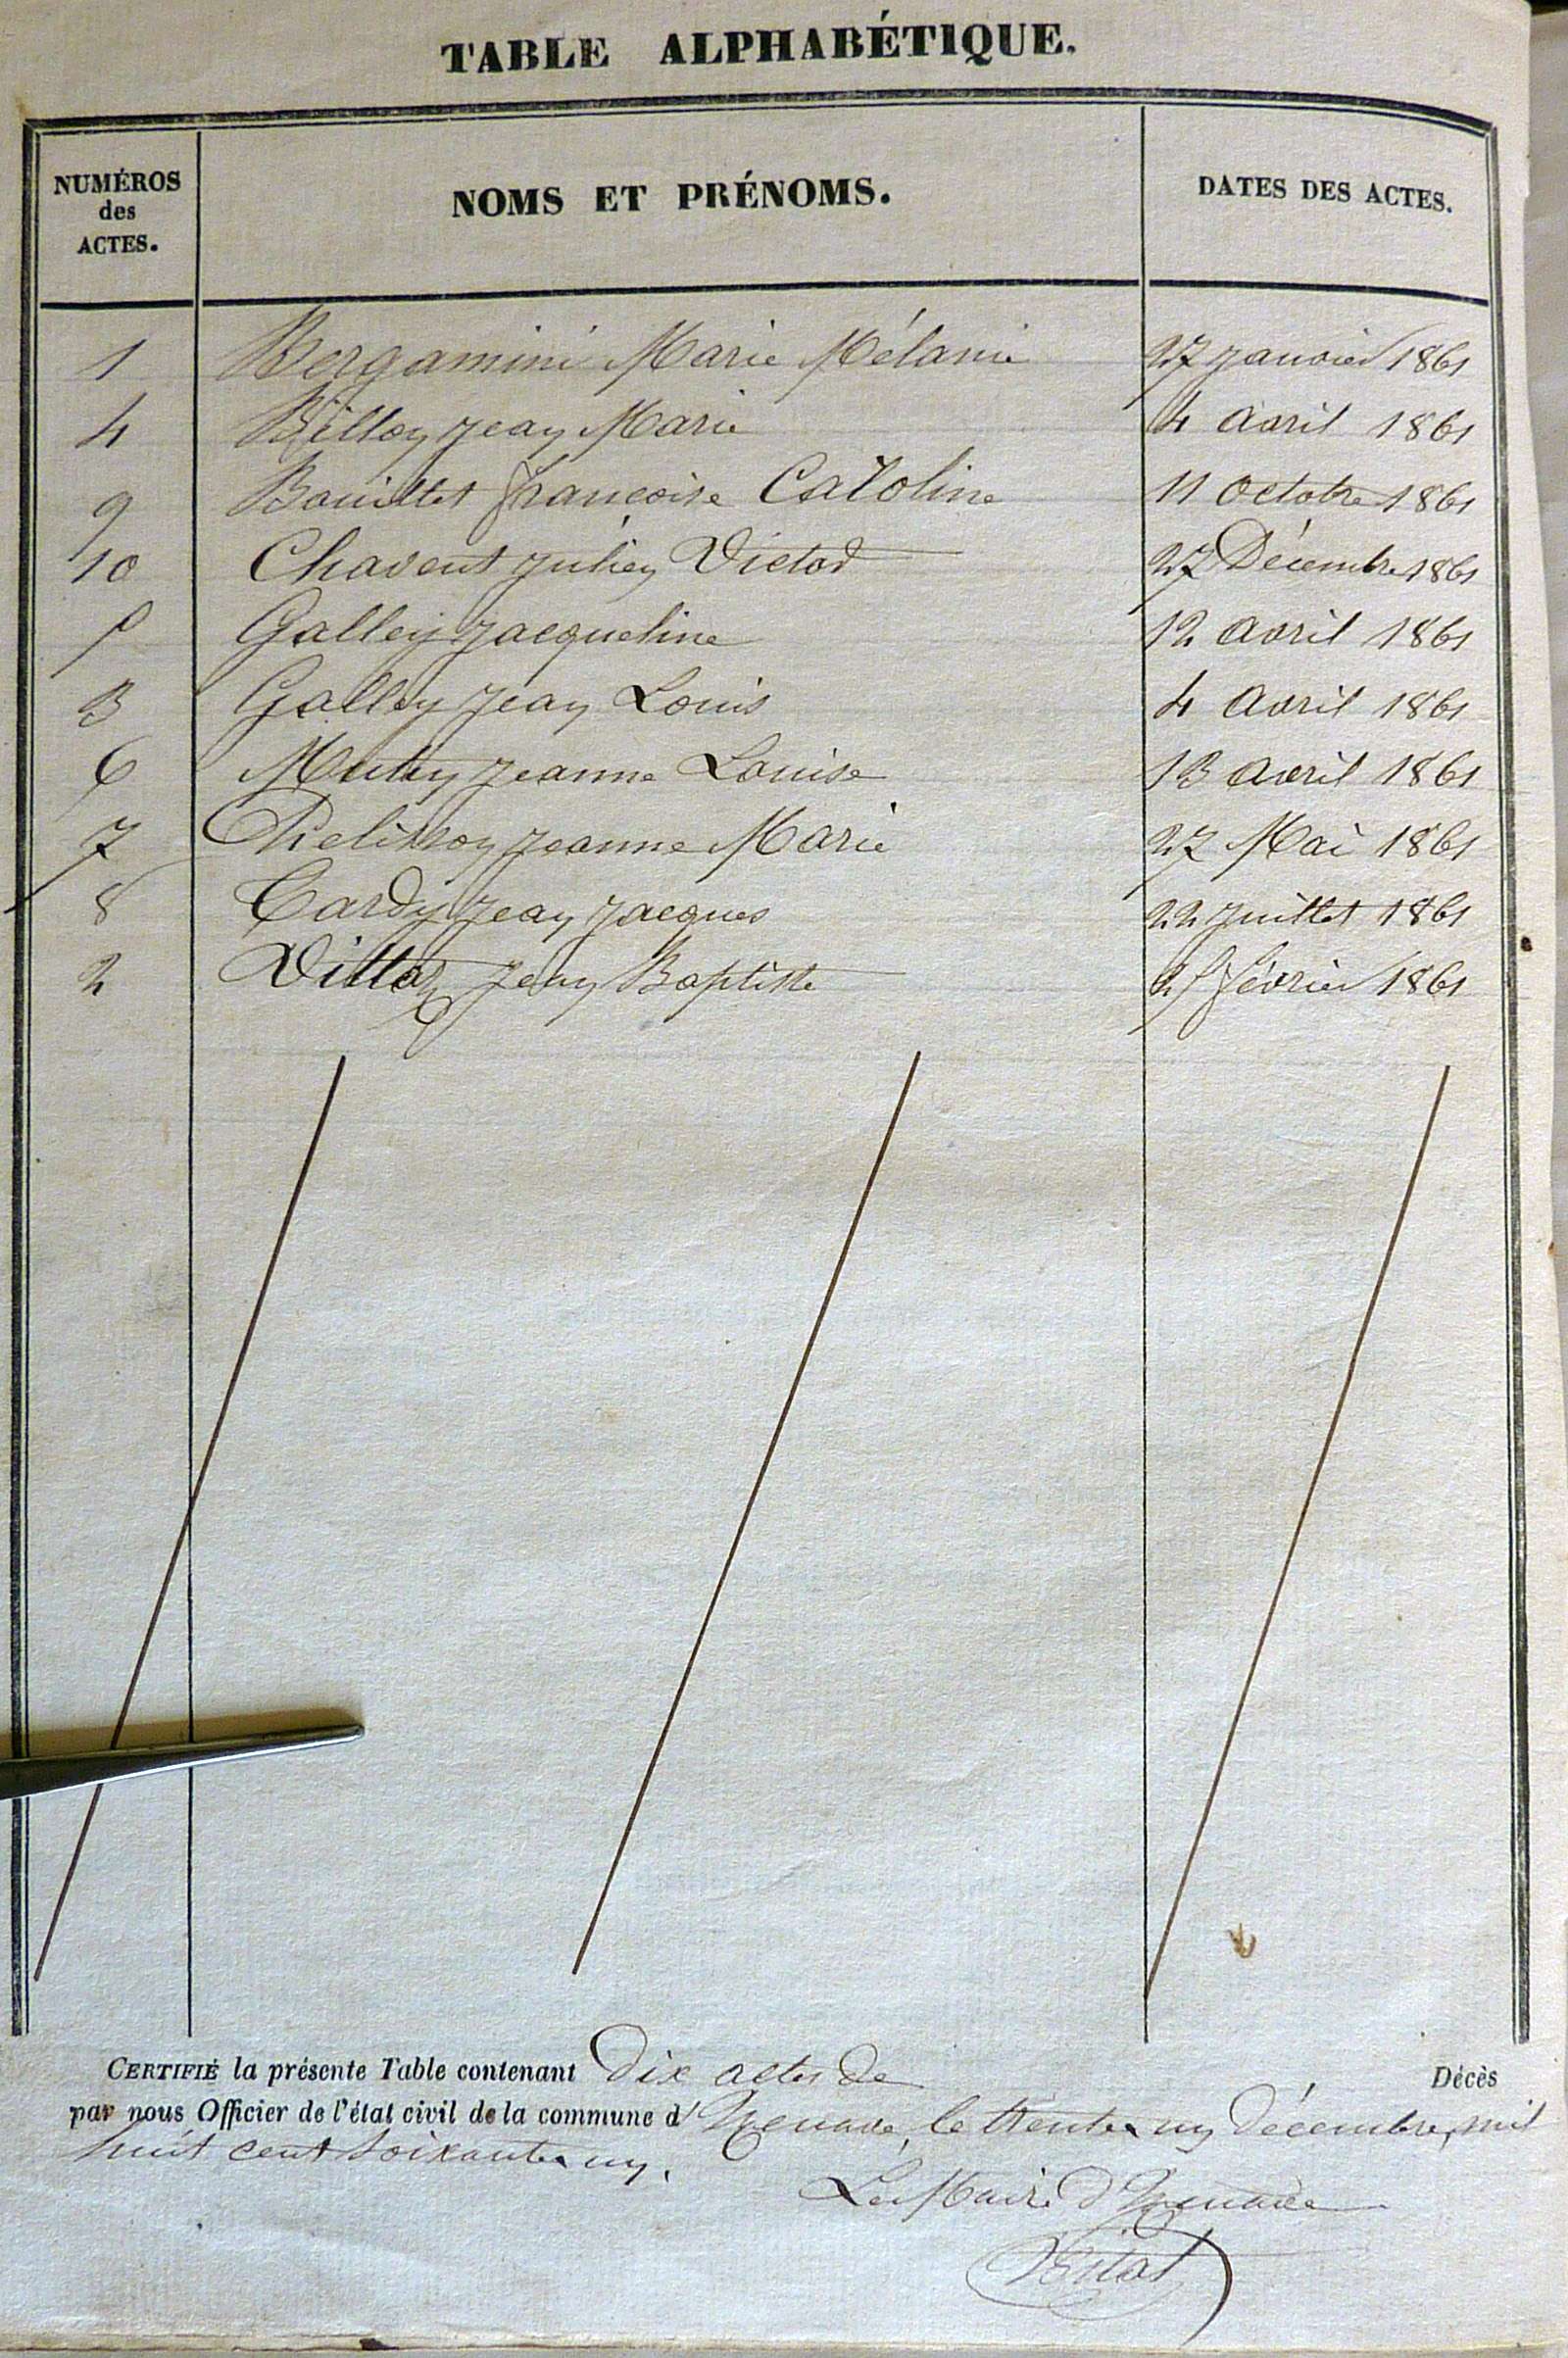 TABLE ALPHABÉTIQUE.
NUMÉROS
des
ACTES.
NOMS ET PRÉNOMS.
DATES DES ACTES.
1 Bergamini Marie Mélanie 27 janvier 1861
4 Billoy Jean Marie 4 avril 1861
9 Bouillet françoise Caroline 11 octobre 1861
10 Chavent Julien Victor 27 Décembre 1861
5 Galley Jacqueline 12 avril 1861
3 Galley Jean Louis 4 avril 1861
6 Jeanne Louise 13 avril 1861
7 Pelisson Jeanne Marie 27 Mai 1861
8 Tardy Jean Jacques 22 juillet 1861
2 Vittoz Jean Baptiste 25 février 1861
CERTIFIÉ la présente Table contenant Dix actes de Décès
par nous Officier de l'état civil de la commune d'Izenave, le trente un Décembre, mil
huit cent soixante un.
Le Maire d'Izenave